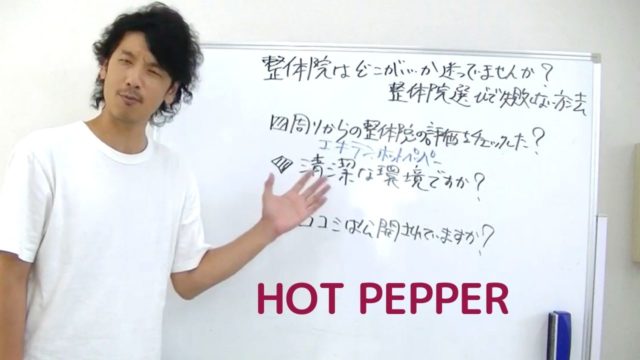 整体院はどこがいいか迷っていませんか?
整体院選びで失敗しない方法
周りからの整体院の評価をチェックした?
エキテン ホットペッパー
清潔な環境ですか?
口コミは公開されていますか?
HOT PEPPER